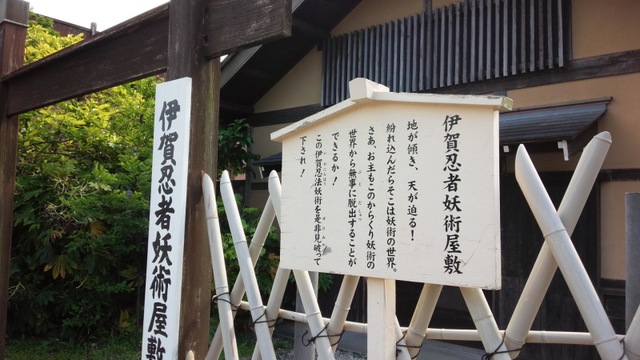 伊賀忍者妖術屋敷
地が傾き、天が迫る!
紛れ込んだらそこは妖術の世界。
さあ、お主もこのからくり妖術の
世界から無事に脱出することが
できるか!
この伊賀忍法妖術を是非見破って
下され!
伊賀忍者妖術屋敷